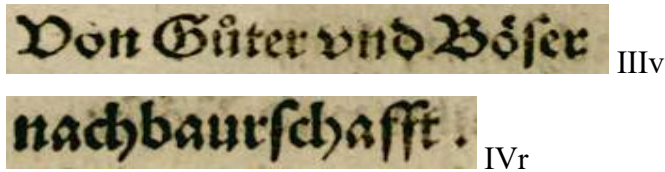 Von Gůter vnd Böſer IIIv
nachbaurſchafft. IVr